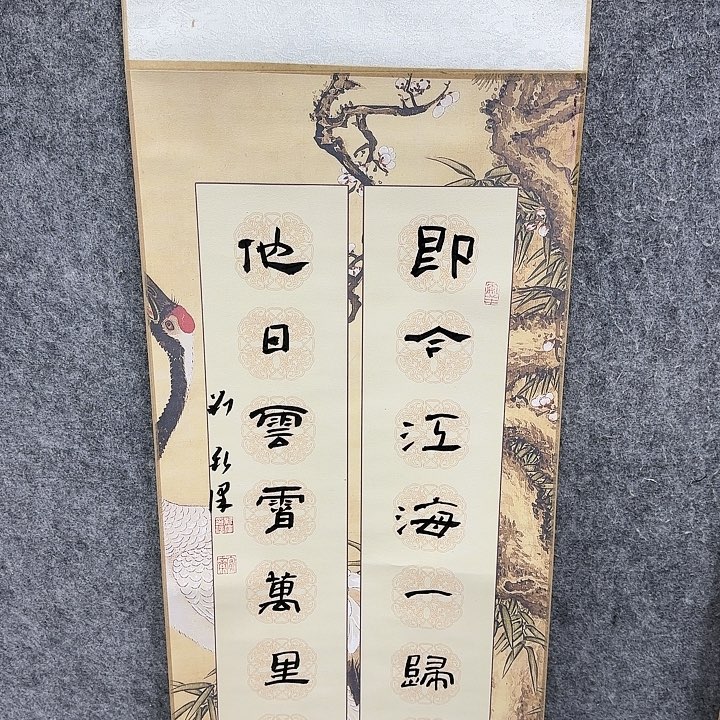 即今江海一歸
他日雲霄萬里